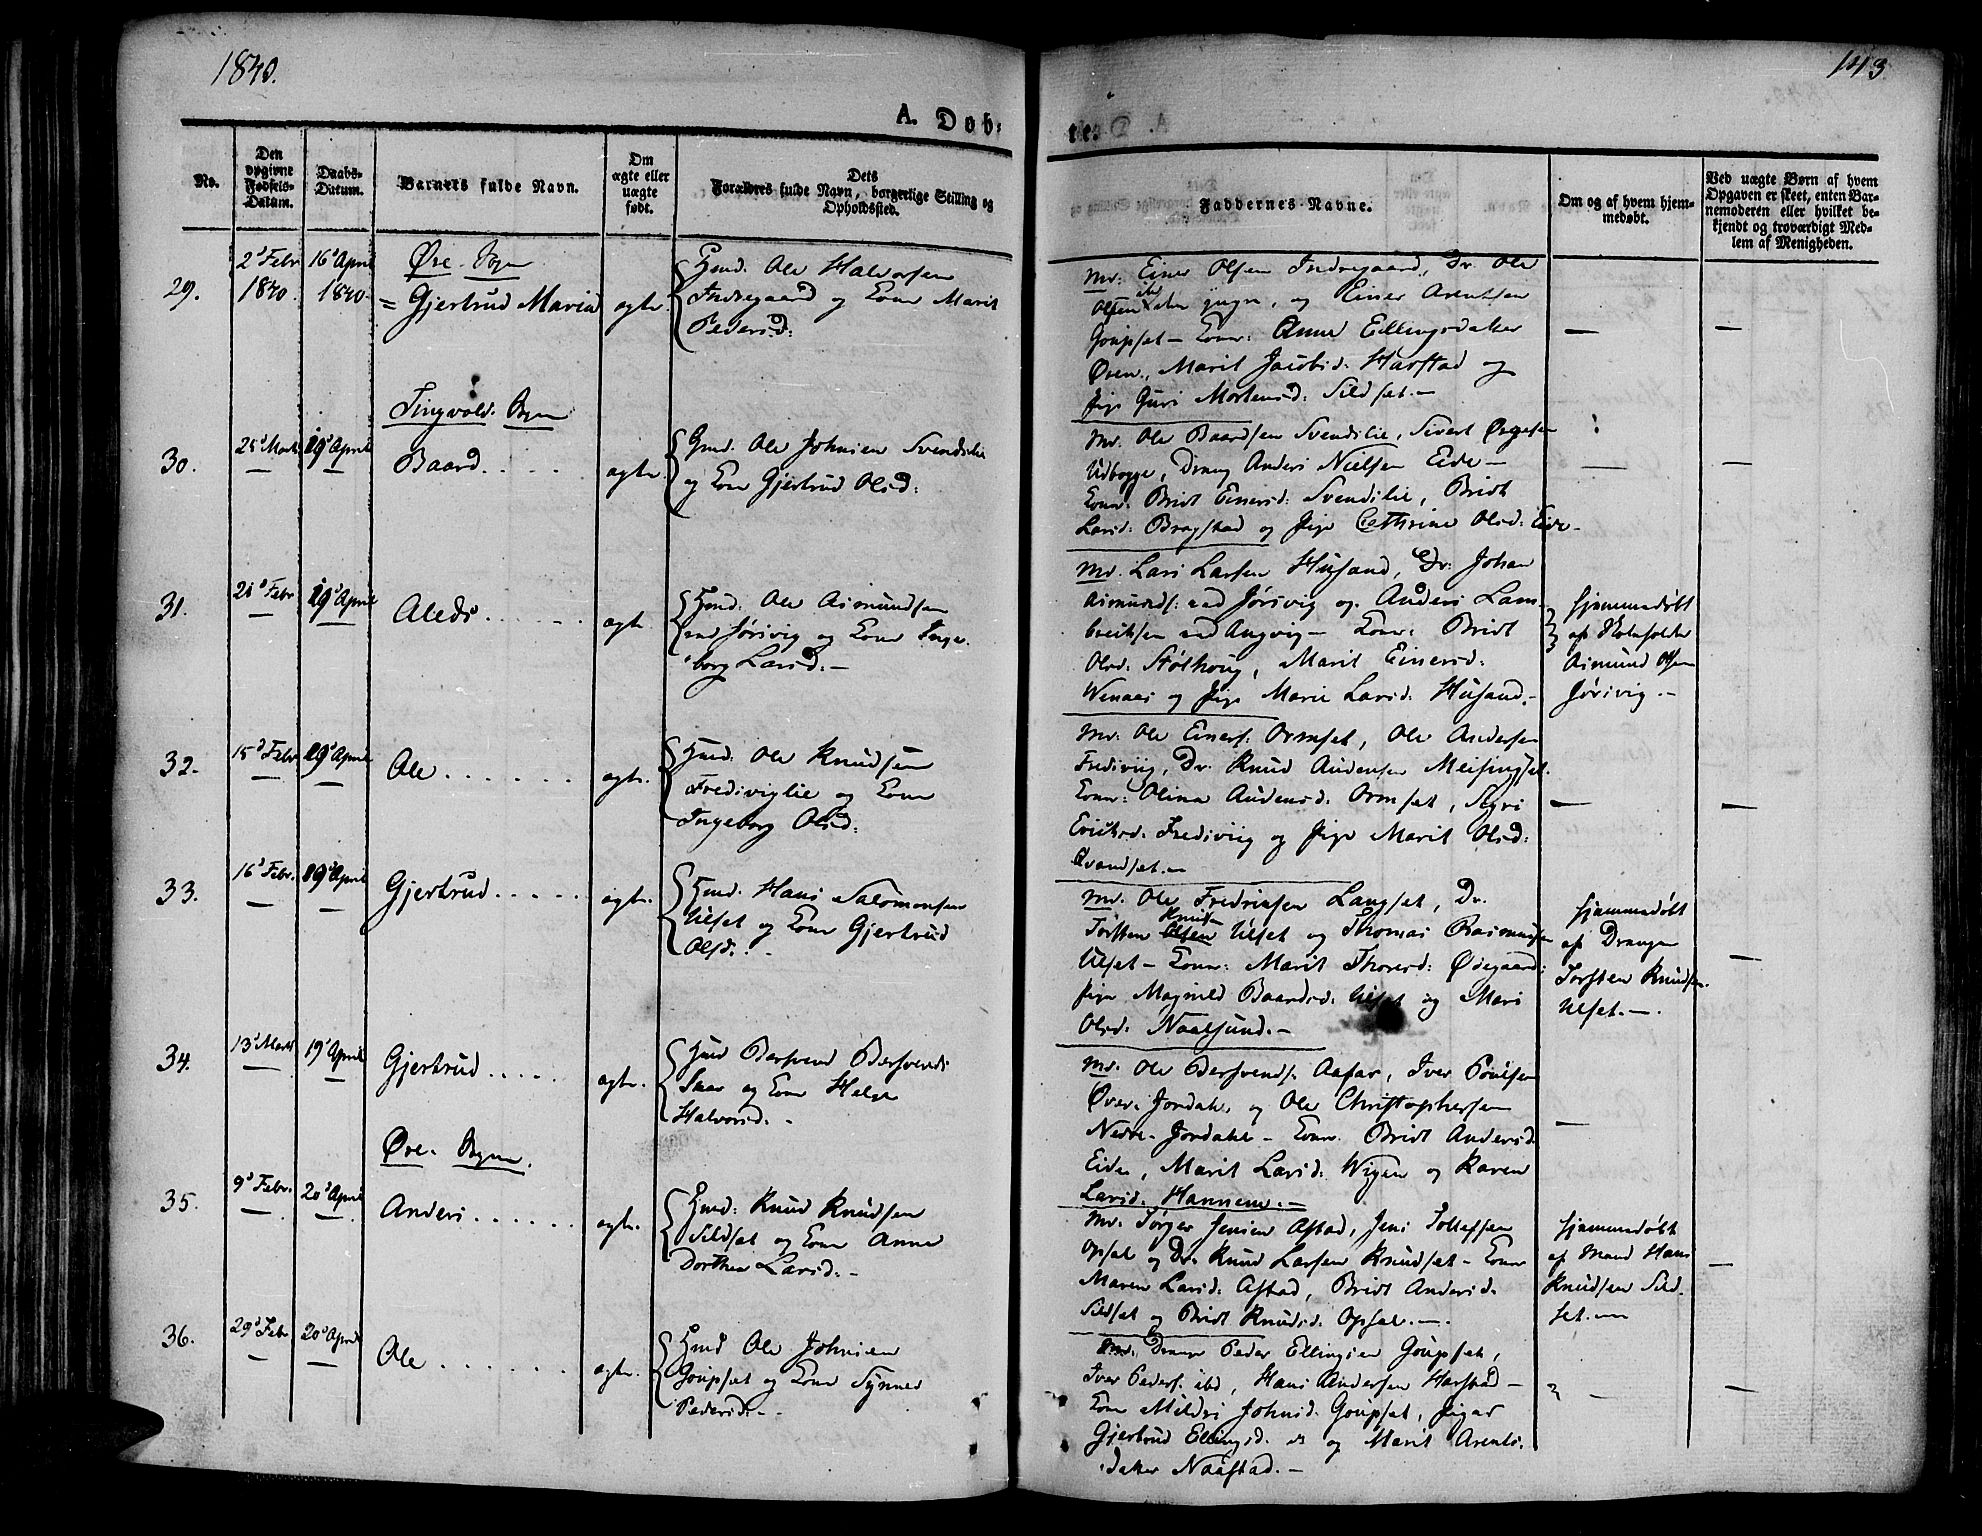 1840.
143
A. Døb-
te.
No.
Den
opgivne
Fødsels-
Datum.
Daabs-
Datum.
Barnets fulde Navn.
Om
ægte eller
uægte
født.
Dets
Forældres fulde Navn, borgerlige Stilling og
Opholdssted.
Faddernes Navne.
Om og af hvem hjem-
medøbt.
Ved uægte Børn af hvem
Opgaven er skeet, enten Bar-
nemoderen eller hvilket be-
kjendt og troværdigt Med-
lem af Menigheden.
29.
2d Febr
1840.
16d April
1840.
Øre Sogn
= Gjertrud Maria
ægte.
Gmd. Ole Halvorsen
Indregaard og Kone Marit
Pedersd:
Md. Einer Olsen Indregaard, Dr. Ole
Olsen ibd den yngre, og Einer Arentsen
Goupset — Koner: Anne Ellingsdatter
Øren, Marit Jacobsd. Harstad og
Pige Guri Mortensd. Sildset. —
—
—
Tingvold. Sogn
30.
25d Marts
—
19d April
—
Baard. . . . .
ægte.
Gmd. Ole Johnsen Svendslie
og Kone Gjertrud Olsd:
Md. Ole Baardsen Svendslie, Sivert
Udbygge, Dreng Anders Nielsen Eide —
Koner: Bridt Einersd: Svendslie, Bridt
Larsd: Bragstad og Pige Cathrine Olsd: Eide —
—
—
31.
21d Febr
—
19d April
—
Aleds. . . . . .
ægte.
Gmd. Ole Asmundsen
ved Jørsvig og Kone Inge
borg Larsd. —
Md. Lars Larsen Husand, Dr. Johan
Asmunds: ved Jørsvig og Anders Lam
bregtsen ved Angvig — Koner: Bridt
Olsd: Stølhoug, Marit Einersd:
Wenaas og Pige Marie Larsd: Husand. —
hjemmedøbt
af
Asmund Olsen
Jørsvig. —
32.
15d Febr
—
19d April
—
Ole . . . . . .
ægte.
Gmd. Ole Knudsen
Fredsviglie og Kone
Ingeborg Olsd:
Md. Ole Einers: Ormset, Ole Andersen
Fredsviig, Dr. Knud Audensen Meisingset.
Koner: Olina Audensd: Ormset, Sigri
Ericksd. Fredsviig og Pige Marit Olsd:
Qvandset. —
—
—
33.
16d Febr.
—
19d April
—
Gjertrud. . . . .
ægte.
Gmd. Hans Salomonsen
Ulset og Kone Gjertrud
Olsd. . —
Md. Ole Fredriksen Langset, Dr.
Torsten Knudsen Olsen Ulset og Thomas Rasmussen
Ulset — Koner: Marit Thoresd: Ødegaard:
Pige Magnild Baardsd: Ulset og Mari
Olsd: Naalsund. —
hjemmedøbt
af Drengen
Torsten Knudsen
Ulset. —.
—
34.
13d Marts
—
19d April
—
Gjertrud. . . . .
ægte.
Gmd Bersvend Bersvends:
og Kone Helge
Halvorsd. —
Md. Ole Bersvends: Aafar, Iver Poulsen
Øvre-Jordahl, og Ole Christophersen
Nedre-Jordahl — Koner. Bridt Andersd.
Eide, Marit Larsd: Wigen og Karen
Larsd. Hannem. —
—
Øre. Sogn.
35.
9d Febr.
—
20d April
—
Anders . . . . . .
ægte.
Gmd: Knud Knudsen
Sildset og Kone Anne
Dorthea Larsd. —
Md. Jørgen Jensen Astad, Jens Tollefsen
Opset og Dr. Knud Larsen Knudset — Koner
Maren Larsd: Astad, Bridt Andersd.
Sildset og Bridt Knudsd. Opset. —.
hjemmedøbt
af Mand Hans
Knudsen Sild-
set. —
—
36.
29d Febr.
—
20d April
—
Ole . . . . . .
ægte.
Gmd Ole Johnsen
Goupset og Kone Synnev
Pedersd. —
Md. Dreng Peder Ellingsen Goupset,
Iver Peders. ibd, Hans Andersen Harstad —
Kone Mildri Johnsd. Goupset, Piger
Gjertrud Ellingsd. og Marit Arents-
datter Naastad. —
—
—